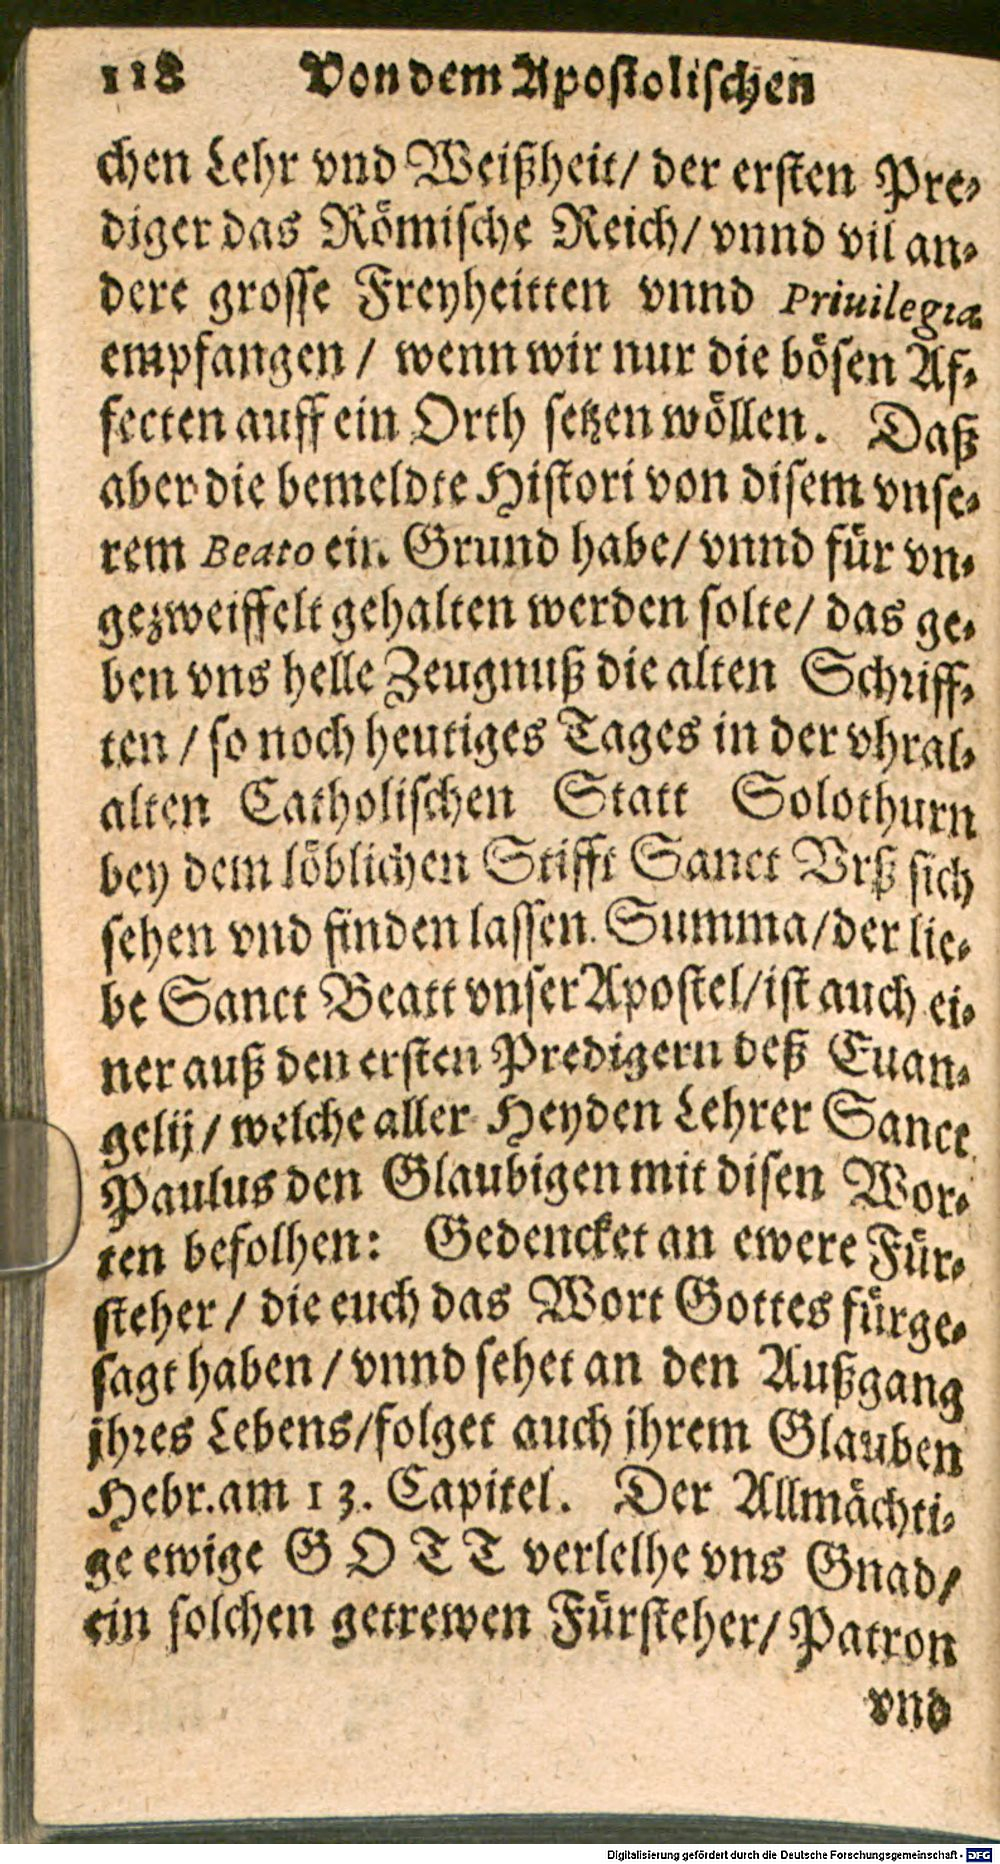 118 Von dem Apostolischen
chen Lehr vnd Weißheit/ der ersten Pre-
diger das Römische Reich/ vnnd vil an-
dere grosse Freyheitten vnnd Priuilegia
empfangen/ wenn wir nur die bösen Af-
fecten auff ein Orth setzen wöllen. Daß
aber die bemeldte Histori von disem vnse-
rem Beato ein Grund habe/ vnnd für vn-
gezweiffelt gehalten werden solte/ das ge-
ben vns helle Zeugnuß die alten Schriff-
ten/ so noch heutiges Tages in der vhral-
alten Catholischen Statt Solothurn
bey dem löblichen Stifft Sanct Vrß sich
sehen vnd finden lassen. Summa/ der lie-
be Sanct Beatt vnser Apostel/ ist auch ei-
ner auß den ersten Predigern deß Euan-
gelij/ welche aller Heyden Lehrer Sanct
Paulus den Glaubigen mit disen Wor-
ten befolhen: Gedencket an ewere Für-
steher/ die euch das Wort Gottes fürge-
sagt haben/ vnnd sehet an den Außgang
jhres Lebens/ folget auch jhrem Glauben
Hebr. am 13. Capitel. Der Allmächti-
ge ewige GOTT verlelhe vns Gnad/
ein solchen getrewen Fürsteher/ Patron
vnd
Digitalisierung gefördert durch die Deutsche Forschungsgemeinschaft - DFG